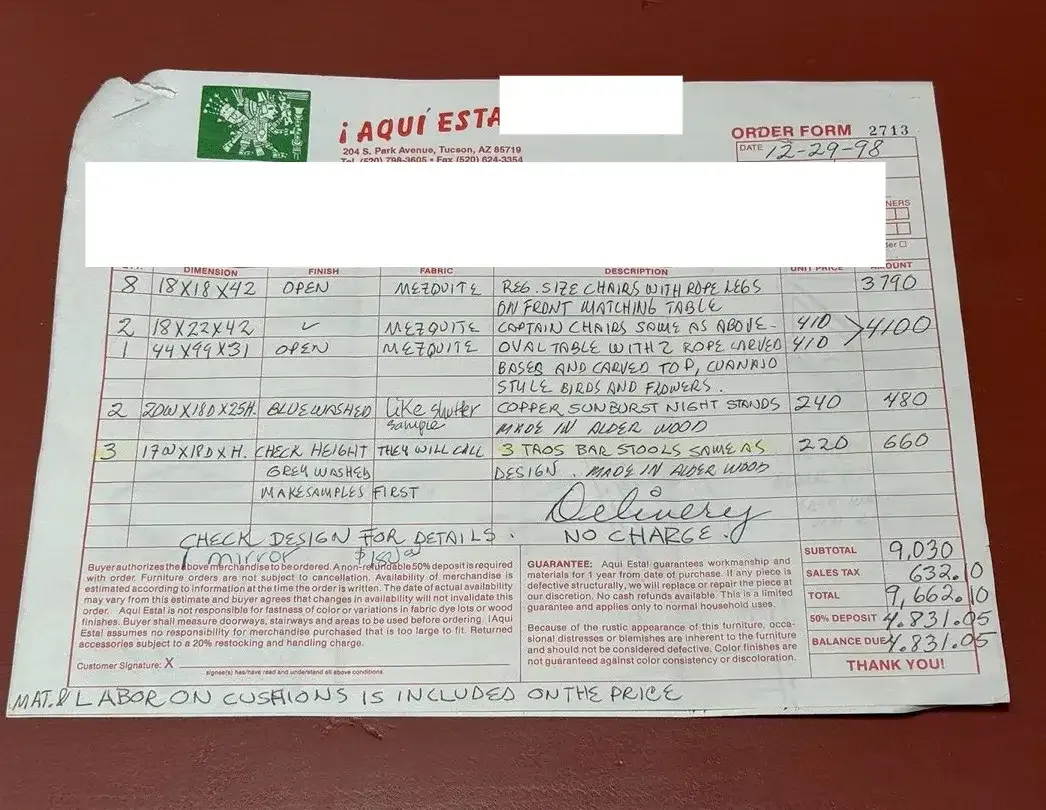 ¡AQUÍ ESTA
204 S. Park Avenue, Tucson, AZ 85719
Tel. (520) 798-3605 • Fax (520) 624-3354
ORDER FORM 2713
DATE 12-29-98
DIMENSION FINISH FABRIC DESCRIPTION UNIT PRICE AMOUNT
8 18X18X42 OPEN MEZQUITE REG. SIZE CHAIRS WITH ROPE LEGS 3790
ON FRONT MATCHING TABLE
2 18X22X42 ✓ MEZQUITE CAPTAIN CHAIRS SAME AS ABOVE- 410 >4100
1 44X99X31 OPEN MEZQUITE OVAL TABLE WITH 2 ROPE CARVED 410
BASES AND CARVED TOP, CUANAJO
STYLE BIRDS AND FLOWERS.
2 20WX18DX25H. BLUE WASHED Like shutter COPPER SUNBURST NIGHT STANDS 240 480
sample MADE IN ALDER WOOD
3 17WX18DXH. CHECK HEIGHT THEY WILL CALL 3 TAOS BAR STOOLS SAME AS 220 660
GREY WASHED DESIGN. MADE IN ALDER WOOD
MAKE SAMPLES FIRST
Delivery
CHECK DESIGN FOR DETAILS. NO CHARGE.
1 mirror
Buyer authorizes the above merchandise to be ordered. A non-refundable 50% deposit is required
with order. Furniture orders are not subject to cancellation. Availability of merchandise is
estimated according to information at the time the order is written. The date of actual availability
may vary from this estimate and buyer agrees that changes in availability will not invalidate this
order. Aqui Esta! is not responsible for fastness of color or variations in fabric dye lots or wood
finishes. Buyer shall measure doorways, stairways and areas to be used before ordering ¡Aqui
Esta! assumes no responsibility for merchandise purchased that is too large to fit. Returned
accessories subject to a 20% restocking and handling charge.
Customer Signature: X
signee(s) has/have read and understand all above conditions.
GUARANTEE: Aqui Esta! guarantees workmanship and
materials for 1 year from date of purchase. If any piece is
defective structurally, we will replace or repair the piece at
our discretion. No cash refunds available. This is a limited
guarantee and applies only to normal household uses.
Because of the rustic appearance of this furniture, occa-
sional distresses or blemishes are inherent to the furniture
and should not be considered defective. Color finishes are
not guaranteed against color consistency or discoloration.
SUBTOTAL 9,030
SALES TAX 632.10
TOTAL 9,662.10
50% DEPOSIT 4.831.05
BALANCE DUE 4.831.05
THANK YOU!
MAT. & LABOR ON CUSHIONS IS INCLUDED ON THE PRICE